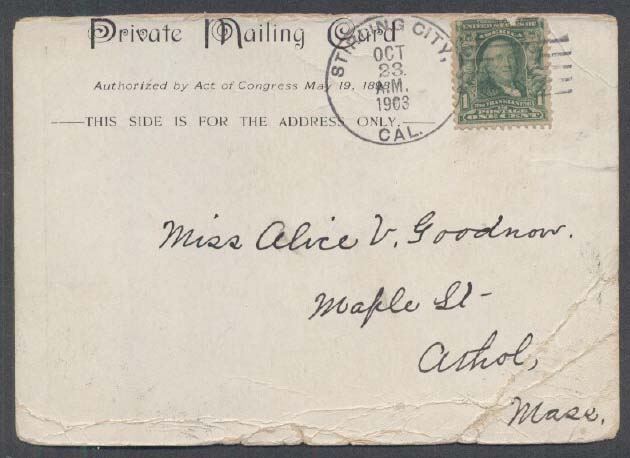 Private Mailing Card
Authorized by Act of Congress May 19, 1898.
THIS SIDE IS FOR THE ADDRESS ONLY.
STIRLING CITY,
OCT
23
A.M.
1903
CAL.
AMERICA
1 1
POSTAGE
ONE CENT
Miss Alice V. Goodnow.
Maple St-
Athol,
Mass.